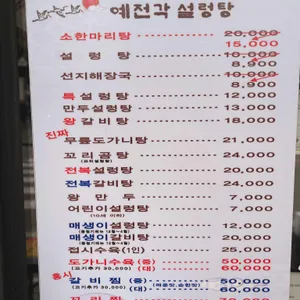 예전각 설렁탕
소한마리탕 20,000
15,000
설렁탕 10,000
8,900
선지해장국 10,000
8,900
특설렁탕 12,000
만두설렁탕 13,000
왕갈비탕 18,000
진짜
무릎도가니탕 21,000
꼬리곰탕 24,000
전복설렁탕 20,000
전복갈비탕 24,000
왕만두 7,000
어린이설렁탕 7,000
(10세 이하)
매생이설렁탕 12,000
매생이갈비탕 20,000
접시수육(1인) 25,000
도가니수육 (중) 50,000
(고기추가 30,000) (대) 60,000
홍시
갈비찜 (중) 50,000
(고기추가 30,000) (대) 60,000
꼬리찜